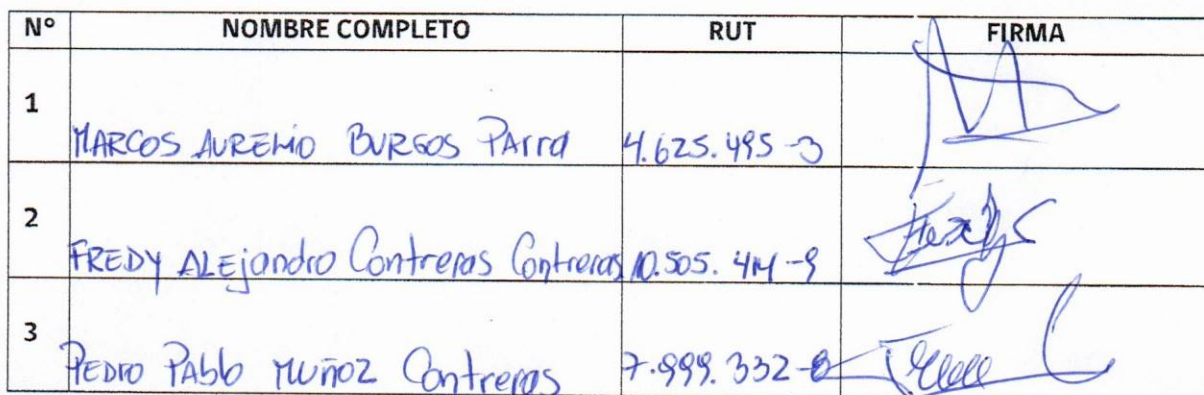 N° NOMBRE COMPLETO RUT FIRMA
1 MARCOS AURELIO BURGOS PArra 4.625.495-3
2 FREDY ALEjandro Contreras Contreras 10.505.414-9
3 PEDro PAblo MUÑOZ Contreras 7.999.332-8